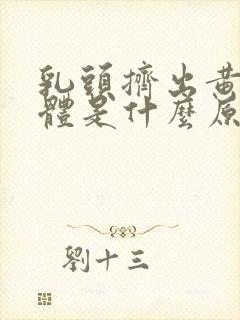 乳頭擠出黃
體是什麼原
劉十三